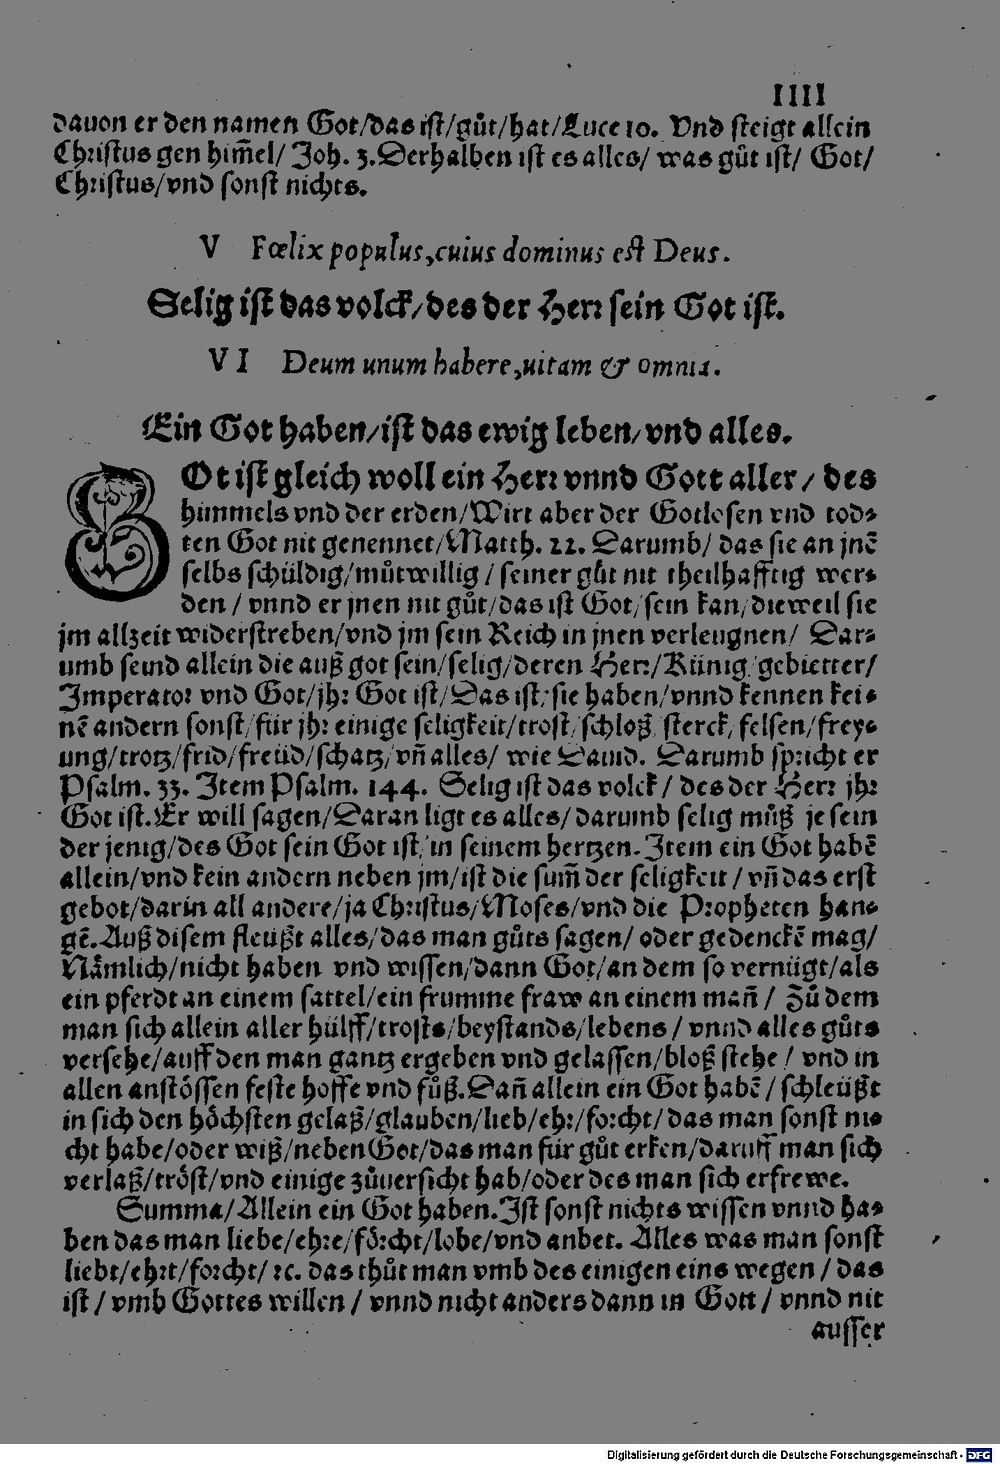 IIII
dauon er den namen Got/das ist/gůt/hat/Luce 10. Vnd steigt allein
Christus gen him̄el/ Joh. 3. Derhalben ist es alles/ was gůt ist/ Got/
Christus/vnd sonst nichts.
V Fœlix populus, cuius dominus est Deus.
Selig ist das volck/des der Herr sein Got ist.
VI Deum unum habere, uitam & omnia.
Ein Got haben/ist das ewig leben/vnd alles.
GOt ist gleich woll ein Herr vnnd Gott aller / des
himmels vnd der erden/Wirt aber der Gotlosen vnd tod-
ten Got nit genennet/Matth. 22. Darumb/ das sie an jnē
selbs schüldig/můtwillig / seiner gůt nit theilhafftig wer-
den / vnnd er jnen nit gůt/das ist Got/sein kan/dieweil sie
jm allzeit widerstreben/vnd jm sein Reich in jnen verleugnen/ Dar-
umb seind allein die auß got sein/selig/deren Herr/Künig/gebietter/
Imperator vnd Got/jhr Got ist/Das ist/sie haben/vnnd kennen kei-
nē andern sonst/für jhr einige seligkeit/trost/schloß/sterck/felsen/frey-
ung/trotz/frid/freüd/schatz/vn̄ alles/ wie Dauid. Darumb spricht er
Psalm. 33. Item Psalm. 144. Selig ist das volck / des der Herr jhr
Got ist. Er will sagen/Daran ligt es alles/ darumb selig můß je sein
der jenig/des Got sein Got ist/in seinem hertzen. Item ein Got habē
allein/vnd kein andern neben jm/ist die sum̄ der seligkeit / vn̄ das erst
gebot/darin all andere/ja Christus/Moses/vnd die Propheten han-
gē. Auß disem fleüßt alles/das man gůts sagen/ oder gedenckē mag/
Nämlich/nicht haben vnd wissen/dann Got/an dem so vernügt/als
ein pferdt an einem sattel/ein frumme fraw an einem man̄ / Zů dem
man sich allein aller hülff/trosts/beystands/lebens / vnnd alles gůts
versehe/auff den man gantz ergeben vnd gelassen/bloß stehe / vnd in
allen anstössen feste hoffe vnd fůß. Dan̄ allein ein Got habē / schleüßt
in sich den höchsten gelaß/glauben/lieb/ehr/forcht/das man sonst ni-
cht habe/oder wiß/neben Got/das man für gůt erken/daruff man sich
verlaß/tröst/vnd einige zůuersicht hab/oder des man sich erfrewe.
Summa/Allein ein Got haben. Ist sonst nichts wissen vnnd ha-
ben das man liebe/ehre/förcht/lobe/vnd anbet. Alles was man sonst
liebt/ehrt/forcht/ ꝛc. das thůt man vmb des einigen eins wegen / das
ist / vmb Gottes willen / vnnd nicht anders dann in Gott / vnnd nit
ausser
Digitalisierung gefördert durch die Deutsche Forschungsgemeinschaft - DFG